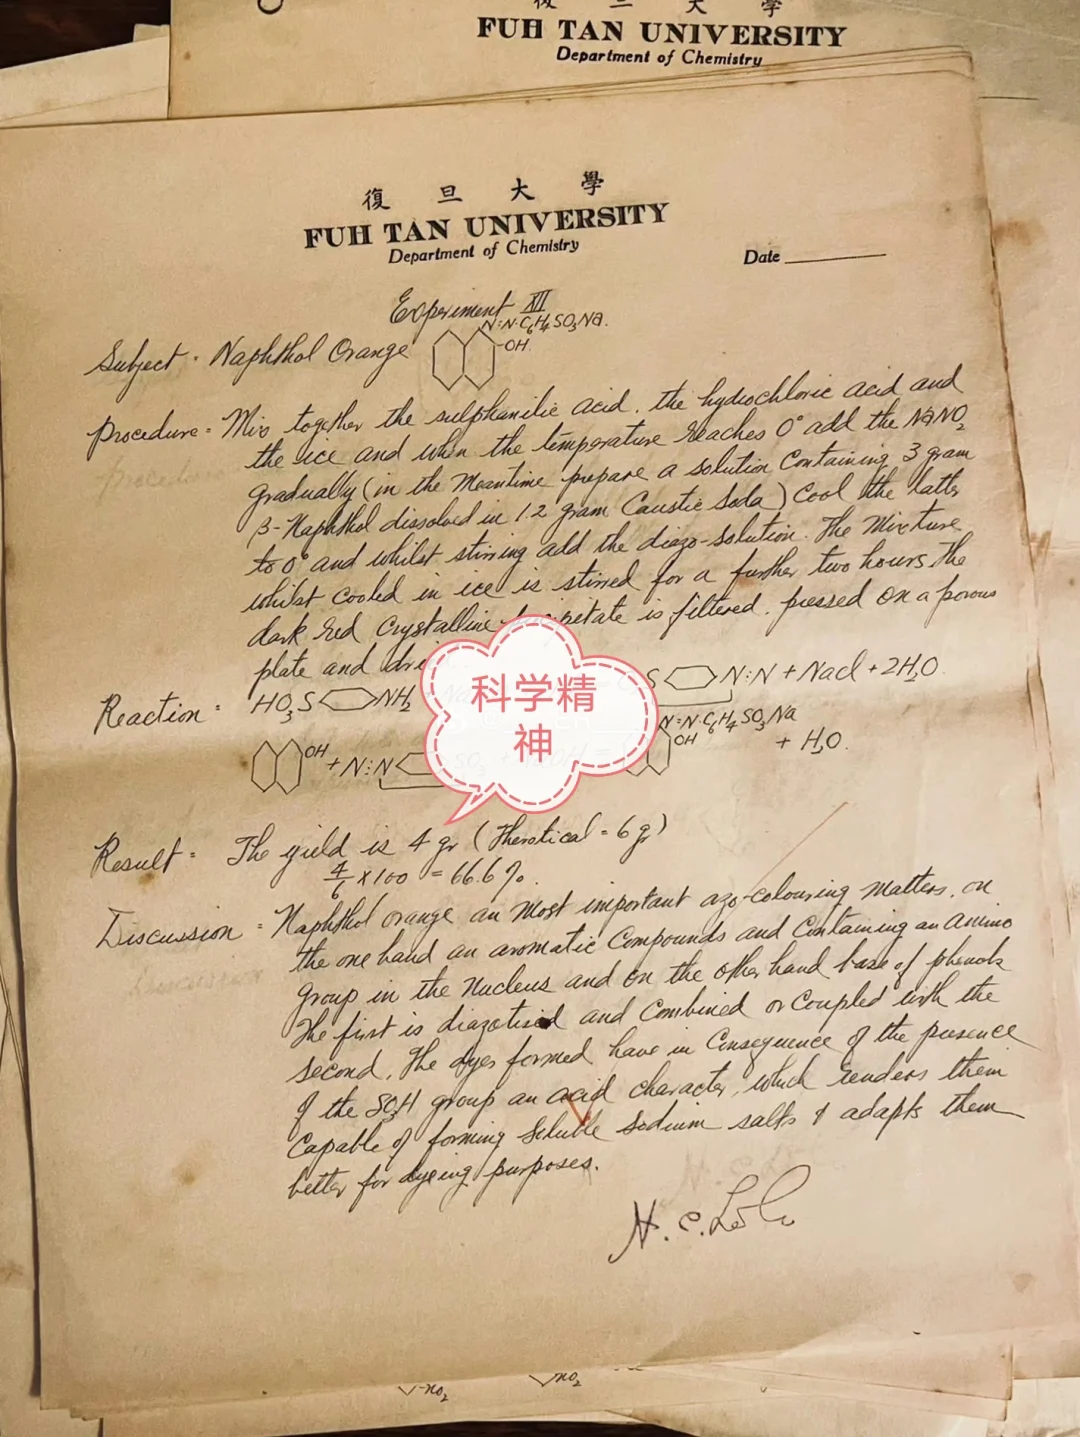 復 旦 大 學
FUH TAN UNIVERSITY
Department of Chemistry
復 旦 大 學
FUH TAN UNIVERSITY
Department of Chemistry
Date
Experiment XII
N:N·C6H4SO3Na.
OH
Subject · Naphthol Orange
Procedure = Mix together the sulphanilic acid, the hydrochloric acid and
the ice and when the temperature reaches 0° add the NaNO2
gradually (in the meantime prepare a solution containing 3 gram
β-Naphthol dissolved in 1.2 gram Caustic Soda) Cool the latter
to 0° and whilst stirring add the diazo-solution. The Mixture
whilst cooled in ice is stirred for a further two hours. The
dark red crystalline is filtered, pressed on a porous
plate and
科学精
神
Reaction = HO3S NH2 S N:N + NaCl + 2H2O
N:N·C6H4SO3Na
OH + N:N OH + H2O.
Result = The yield is 4 gr (Theretical = 6 gr)
4/6 × 100 = 66.6%.
Discussion = Naphthol orange an most important azo-colouring matters, on
the one hand an aromatic Compounds and Containing an amino
group in the nucleus and on the other hand base of phenols
The first is diazotised and combined or coupled with the
second. The dyes formed have in consequence of the presence
of the SO3H group an acid character, which renders them
capable of forming soluble sodium salts & adapts them
better for dyeing purposes.
-NO2
NO2